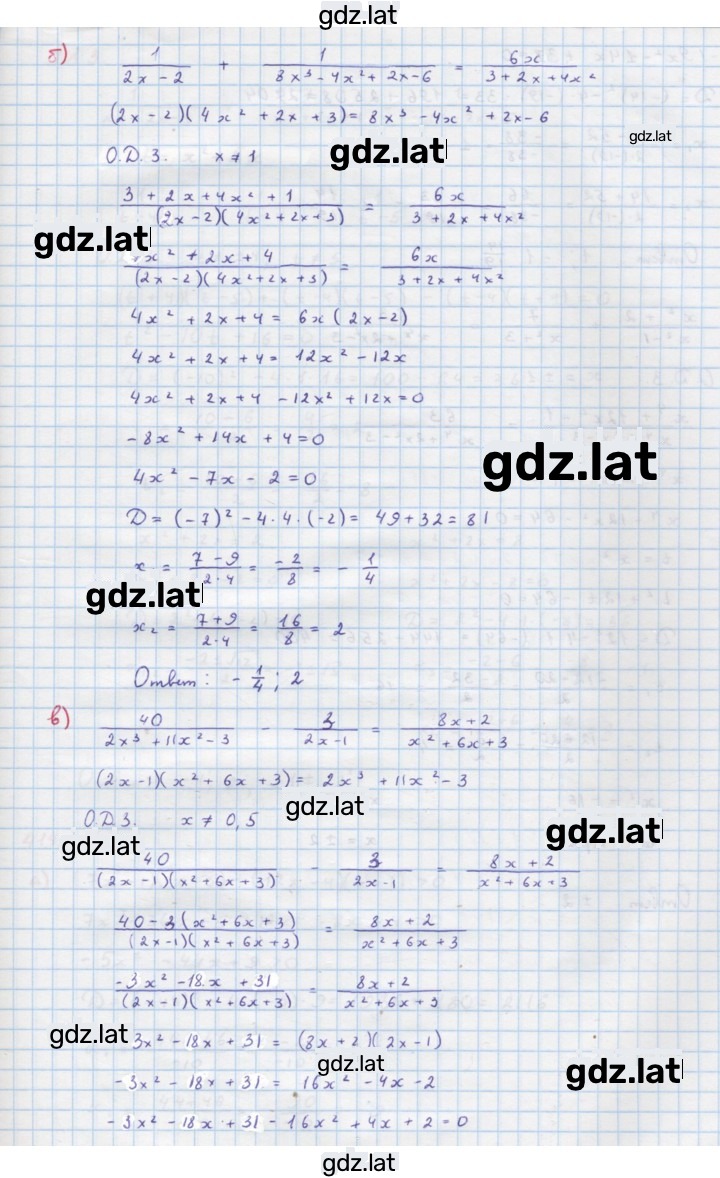 gdz.lat
б) 1/(2x - 2) + 1/(8x³ - 4x² + 2x - 6) = 6x/(3 + 2x + 4x²)
(2x - 2)(4x² + 2x + 3) = 8x³ - 4x² + 2x - 6
gdz.lat
О.Д.З. x ≠ 1
gdz.lat
(3 + 2x + 4x² + 1)/((2x - 2)(4x² + 2x + 3)) = 6x/(3 + 2x + 4x²)
gdz.lat
x² + 2x + 4/((2x - 2)(4x² + 2x + 3)) = 6x/(3 + 2x + 4x²)
4x² + 2x + 4 = 6x(2x - 2)
4x² + 2x + 4 = 12x² - 12x
4x² + 2x + 4 - 12x² + 12x = 0
-8x² + 14x + 4 = 0
gdz.lat
4x² - 7x - 2 = 0
D = (-7)² - 4·4·(-2) = 49 + 32 = 81
x = (7 - 9)/(2·4) = -2/8 = -1/4
gdz.lat
x₂ = (7 + 9)/(2·4) = 16/8 = 2
Ответ: -1/4; 2
в) 40/(2x³ + 11x² - 3) - 3/(2x - 1) = (8x + 2)/(x² + 6x + 3)
(2x - 1)(x² + 6x + 3) = 2x³ + 11x² - 3
gdz.lat
О.Д.З. x ≠ 0,5
gdz.lat
gdz.lat
40/((2x - 1)(x² + 6x + 3)) - 3/(2x - 1) = (8x + 2)/(x² + 6x + 3)
(40 - 3(x² + 6x + 3))/((2x - 1)(x² + 6x + 3)) = (8x + 2)/(x² + 6x + 3)
(-3x² - 18x + 31)/((2x - 1)(x² + 6x + 3)) = (8x + 2)/(x² + 6x + 3)
gdz.lat
3x² - 18x + 31 = (8x + 2)(2x - 1)
gdz.lat
gdz.lat
-3x² - 18x + 31 = 16x² - 4x - 2
-3x² - 18x + 31 - 16x² + 4x + 2 = 0
gdz.lat